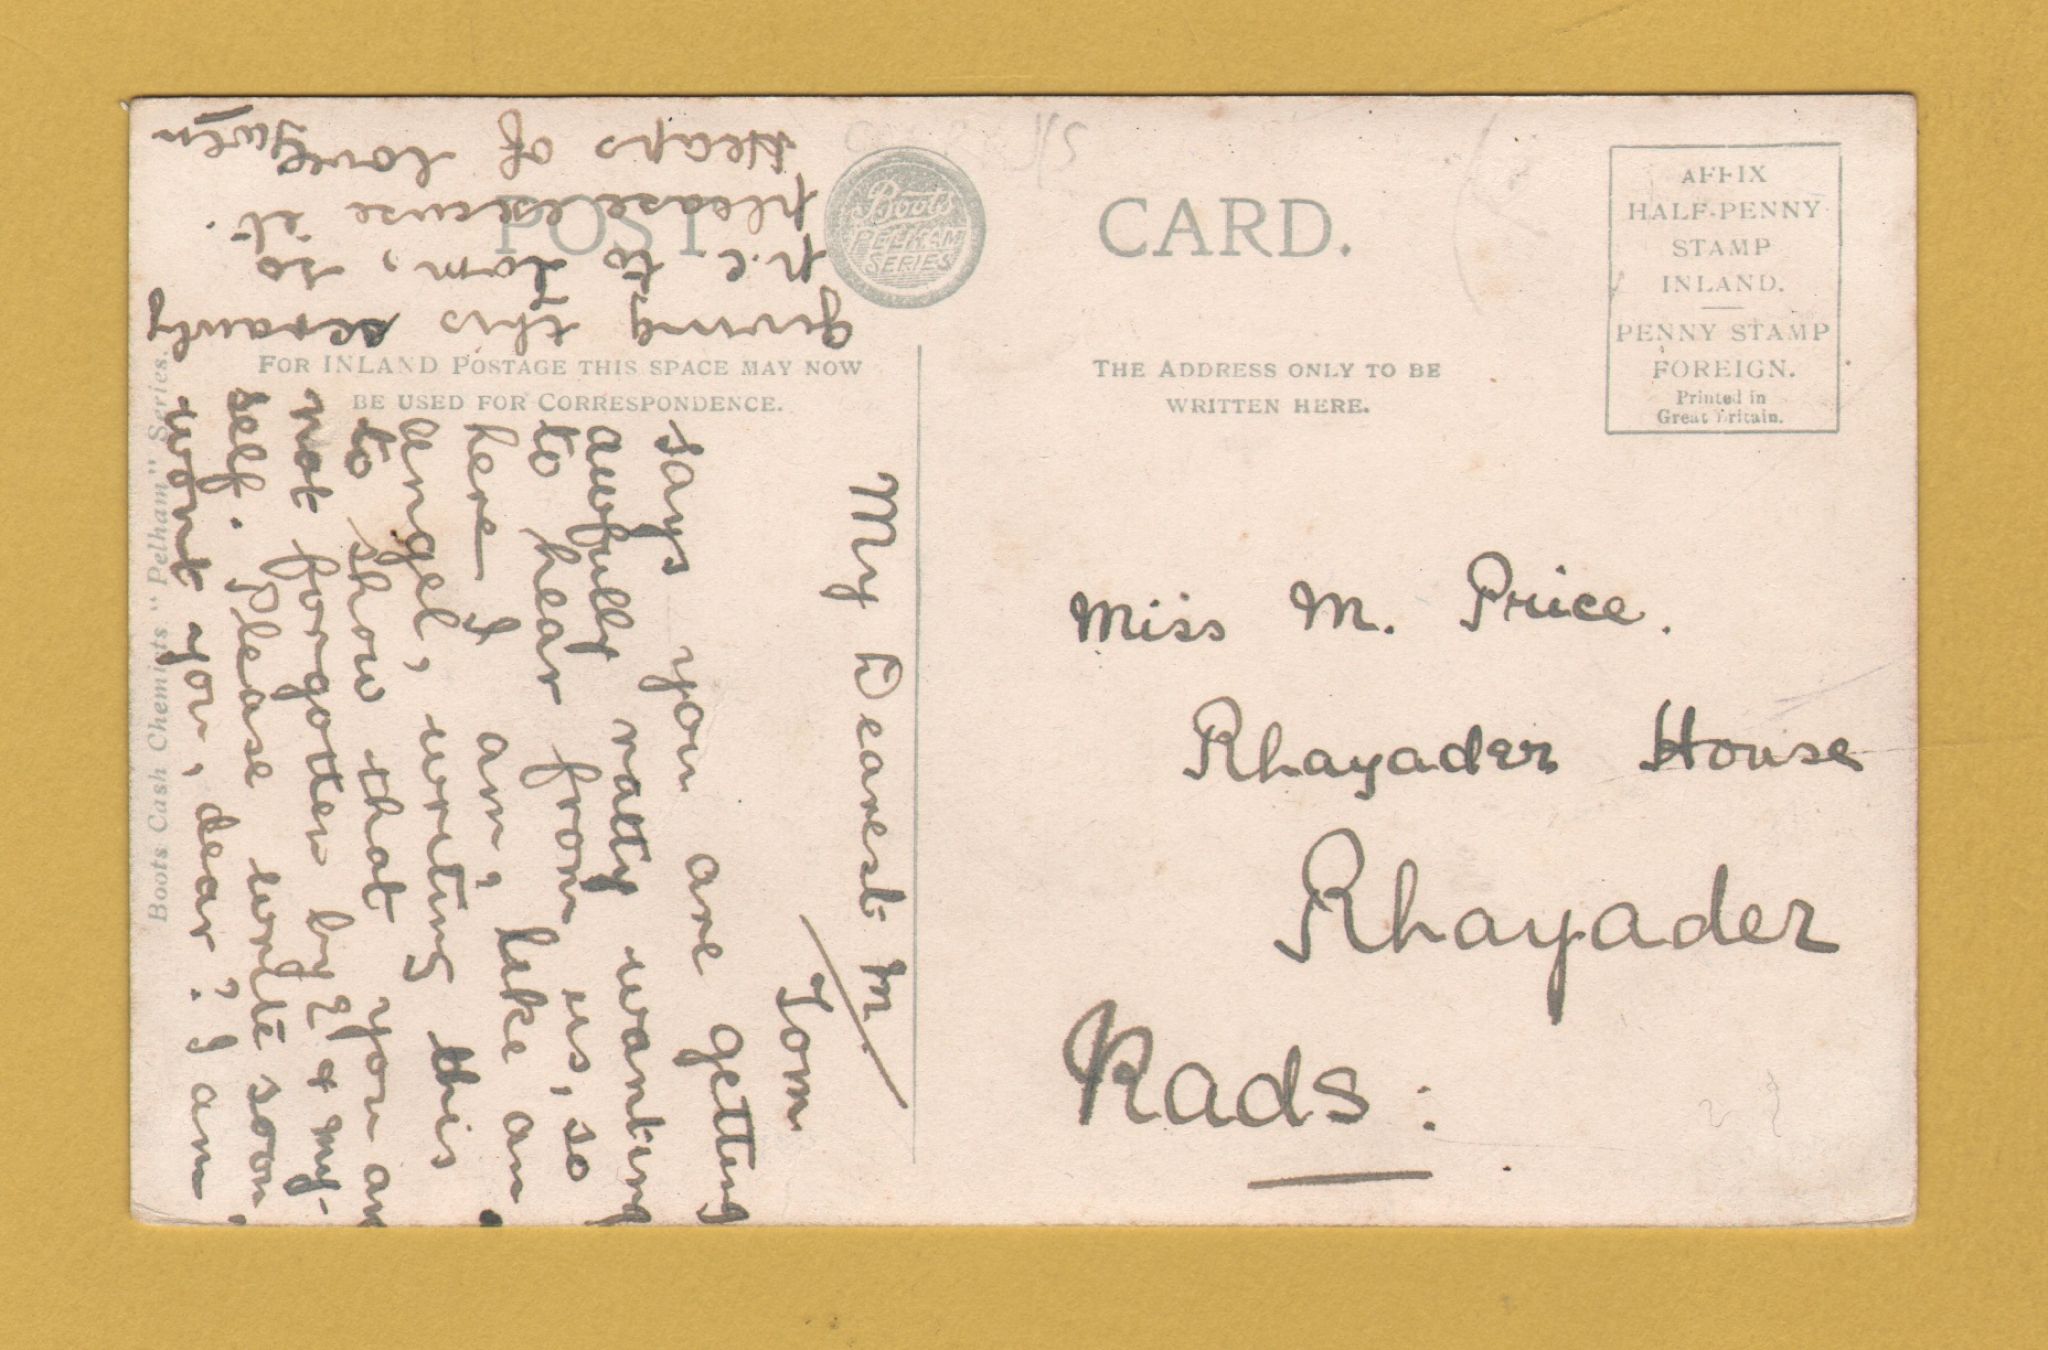 POST CARD.
Boots
PELHAM
SERIES
AFFIX
HALF-PENNY
STAMP
INLAND.
PENNY STAMP
FOREIGN.
Printed in
Great Britain.
FOR INLAND POSTAGE THIS SPACE MAY NOW
BE USED FOR CORRESPONDENCE.
THE ADDRESS ONLY TO BE
WRITTEN HERE.
Boots Cash Chemists "Pelham" Series.
My Dearest M.
Tom
says you are getting
awfully ratty wanting
to hear from us, so
here I am, like an
angel, writing this
to show that you are
not forgotten by & my-
self. Please write soon,
wont you, dear? I am
giving this
p.c to Tom, so
please excuse it.
Heaps of love
Gwen
Miss M. Price.
Rhayader House
Rhayader
Rads: